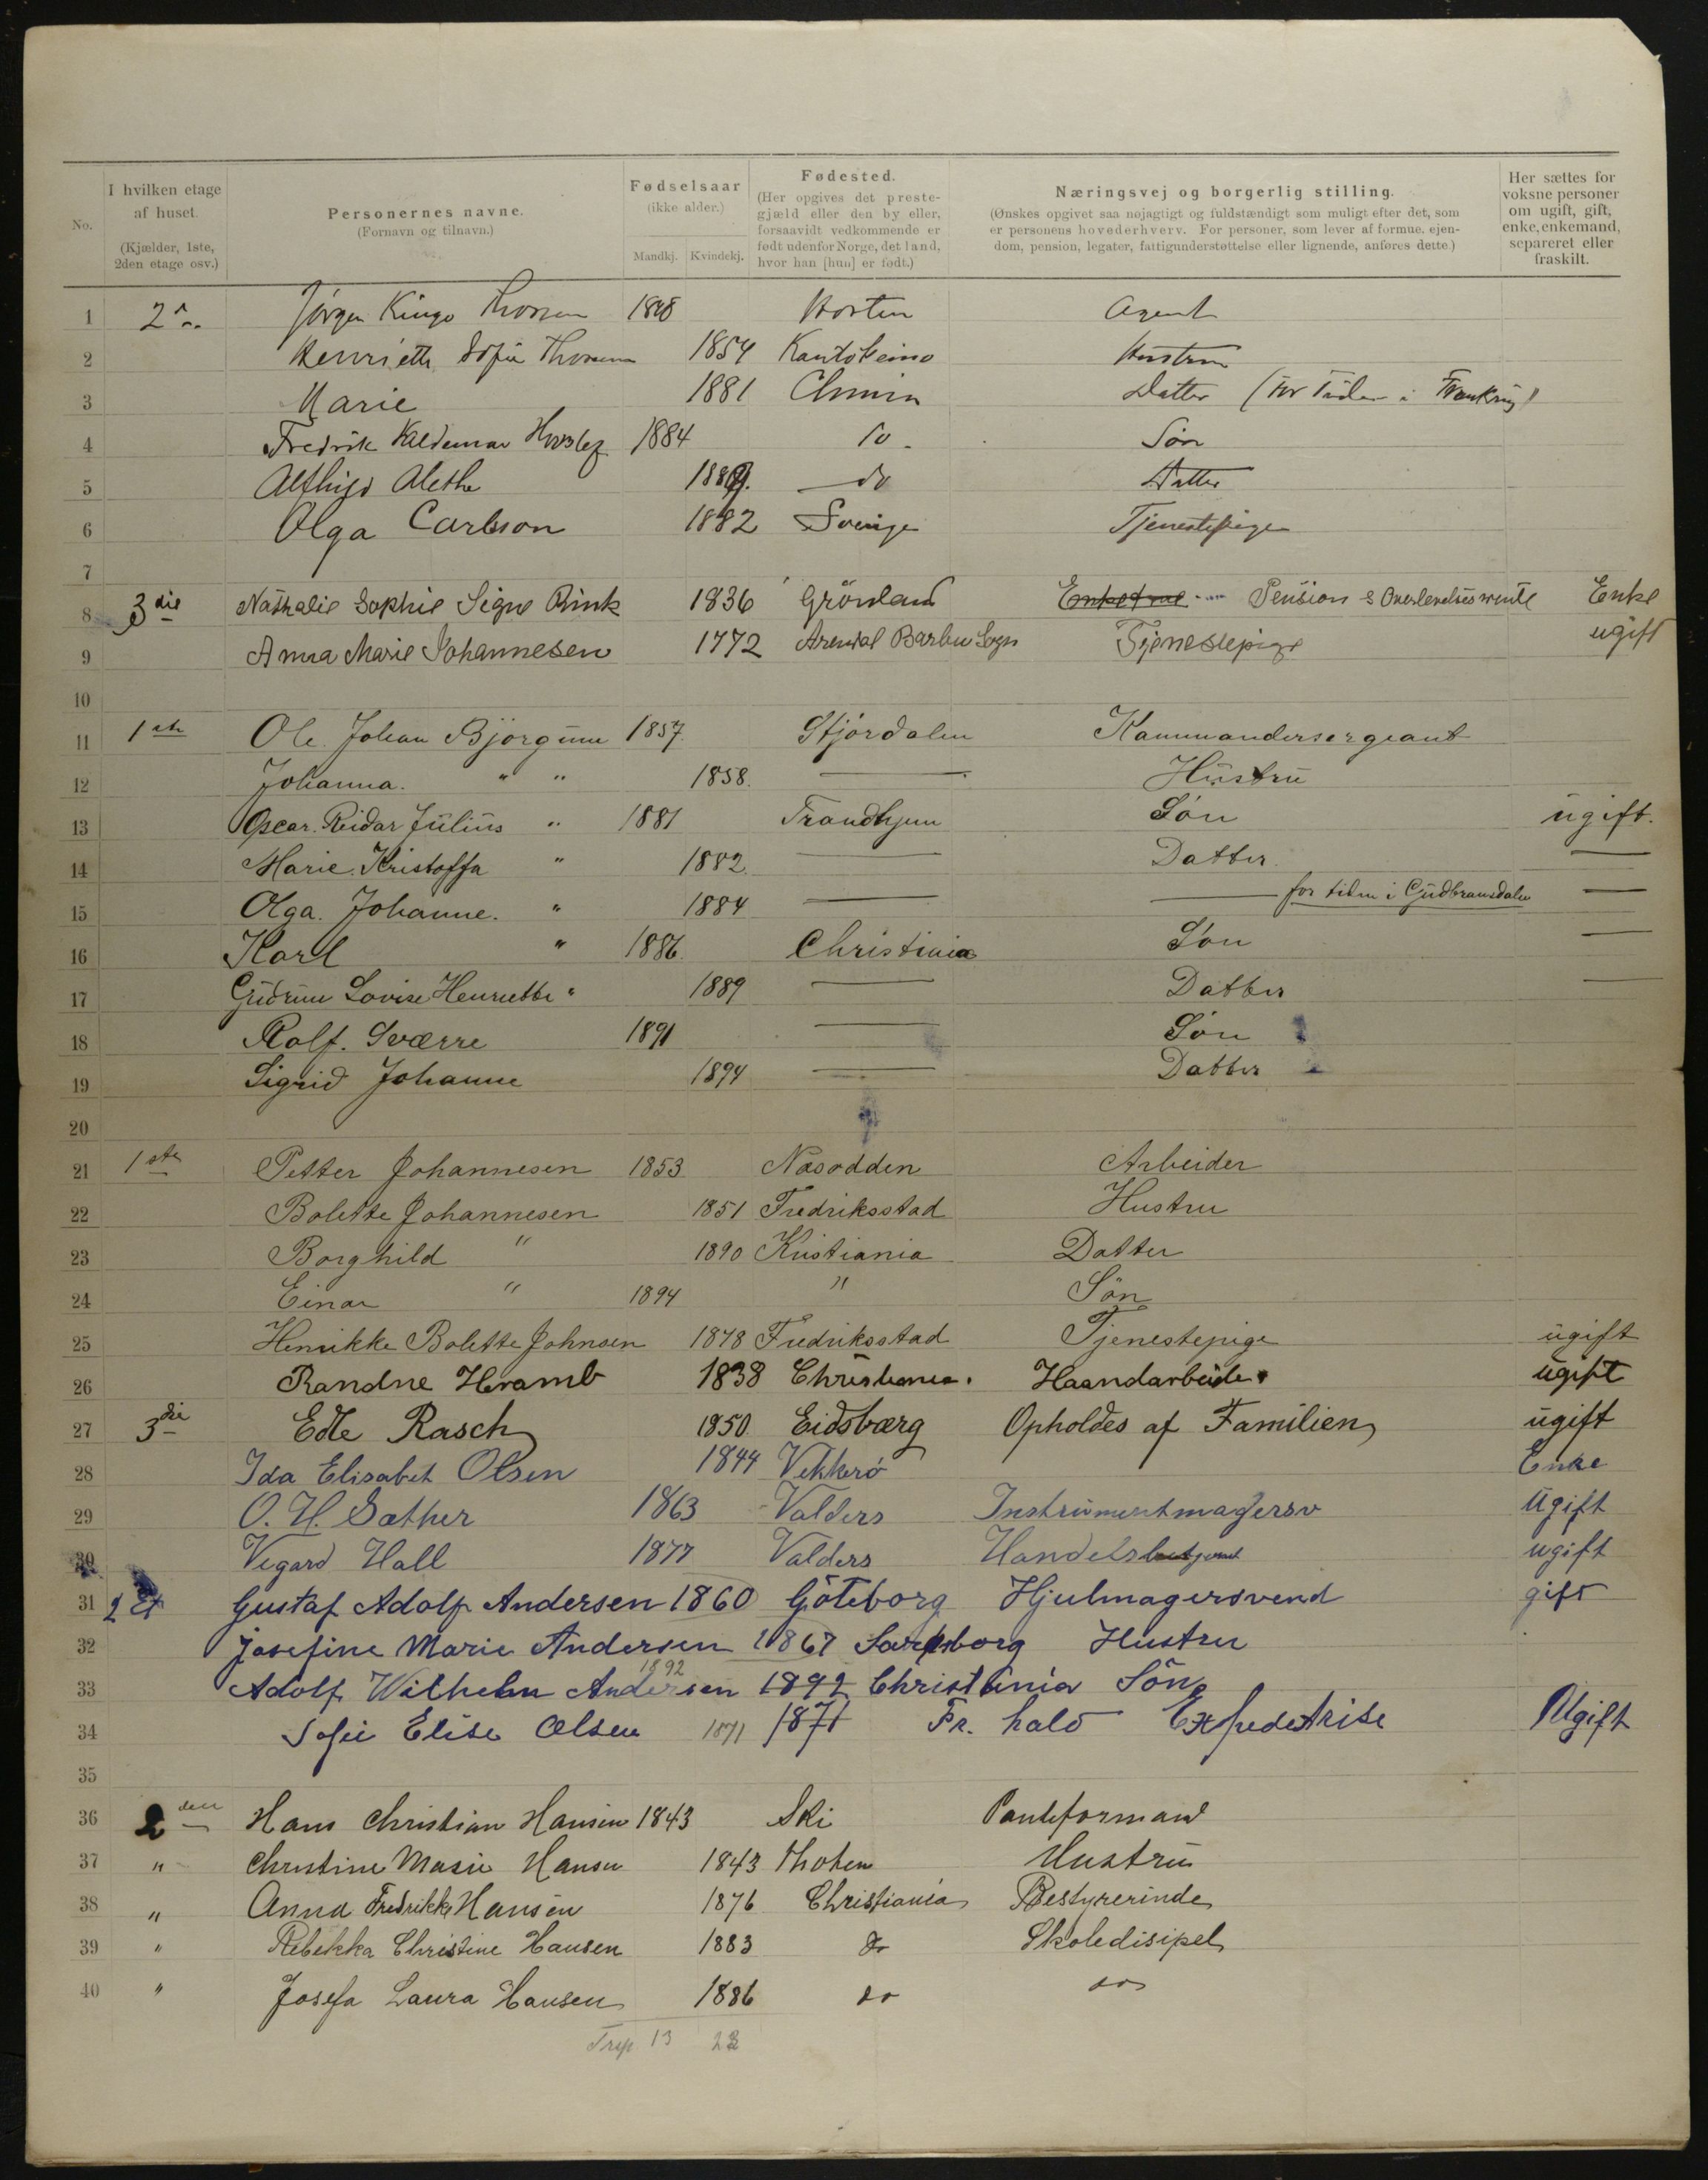 No.
I hvilken etage af huset. (Kjælder, 1ste, 2den etage osv.)
Personernes navne. (Fornavn og tilnavn.)
Fødselsaar (ikke alder.) Mandkj. Kvindekj.
Fødested. (Her opgives det prestegjæld eller den by eller, forsaavidt vedkommende er født udenfor Norge, det land, hvor han [hun] er født.)
Næringsvej og borgerlig stilling. (Ønskes opgivet saa nøjagtigt og fuldstændigt som muligt efter det, som er personens hovederhverv. For personer, som lever af formue, ejendom, pension, legater, fattigunderstøttelse eller lignende, anføres dette.)
Her sættes for voksne personer om ugift, gift, enke, enkemand, separeret eller fraskilt.
1 Jörgen Kingo Horten Agent
2 Sofie 1854 Kautokeino Hustru
3 Marie 1881 Datter
4 Fredrik Valdemar 1884 do Sön
5 Alethe do Datter
6 Olga Carlsson 1882 Sverige Tjenestepige
7
8 3die Nathalie Sophie Signe Rink 1836 Grönland Pension & Overlevelsesrente Enke
9 Anna Marie Johannesen 1772 Arendal Barbu Sogn Tjenestepige ugift
10
11 1ste Ole Johan Björgum 1857. Stjördalen Kammandersergeant
12 Johanna. " " 1858. — Hüstrü
13 Oscar. Reidar Jülius " 1881 Trondhjem Sön ügift.
14 Marie. Kristoffa " 1882. — Datter. —
15 Olga. Johanne. " 1884 — — for tiden i Güdbransdalen —
16 Karl " 1886. Christinia Sön —
17 Güdrün Lovise Henriette " 1889 — Datter —
18 Rolf. Sværre 1891 — Sön
19 Sigrid Johanne 1894 — Datter
20
21 1ste Petter Johannesen 1853 Næsodden Arbeider
22 Bolette Johannesen 1851 Fredriksstad Hustru
23 Borghild " 1890 Kristiania Datter
24 Einar " 1894 " Sön
25 Henrikke Bolette Johnsen 1878 Fredriksstad Tjenestepige ügift
26 1838 Christiania. Haandarbeide. ügift
27 3die Edle Rasch 1850. Eidsbærg Opholdes af Familien ügift
28 Ida Elisabet Olsen 1844 Vækkerö Enke
29 O. H. Sæther 1863 Valders Instrümentmagersv Ugift
30 Vegard Hall 1877 Valders Handelsbetjent ugift
31 2 Et Gustaf Adolf Andersen 1860 Göteborg Hjulmagersvend gift
32 Josefine Marie Andersen 1867 Sarpsborg Hustru
33 Adolf Wilhelm Andersen 1892 1892 Christiania Sön
34 Sofie Elise Olsen 1871 1871 Fr. hald Expeditrise Ugift
35
36 2den Hans Christian Hansen 1843 Ski
37 " Christine Marie Hansen 1843 Thoten Hustrü
38 " Anna Fredrikke Hansen 1876 Christiania Bestyrerinde
39 " Rebekka Christine Hansen 1883 do Skoledisipel
40 " Josefa Laura Hansen 1886 do do
13